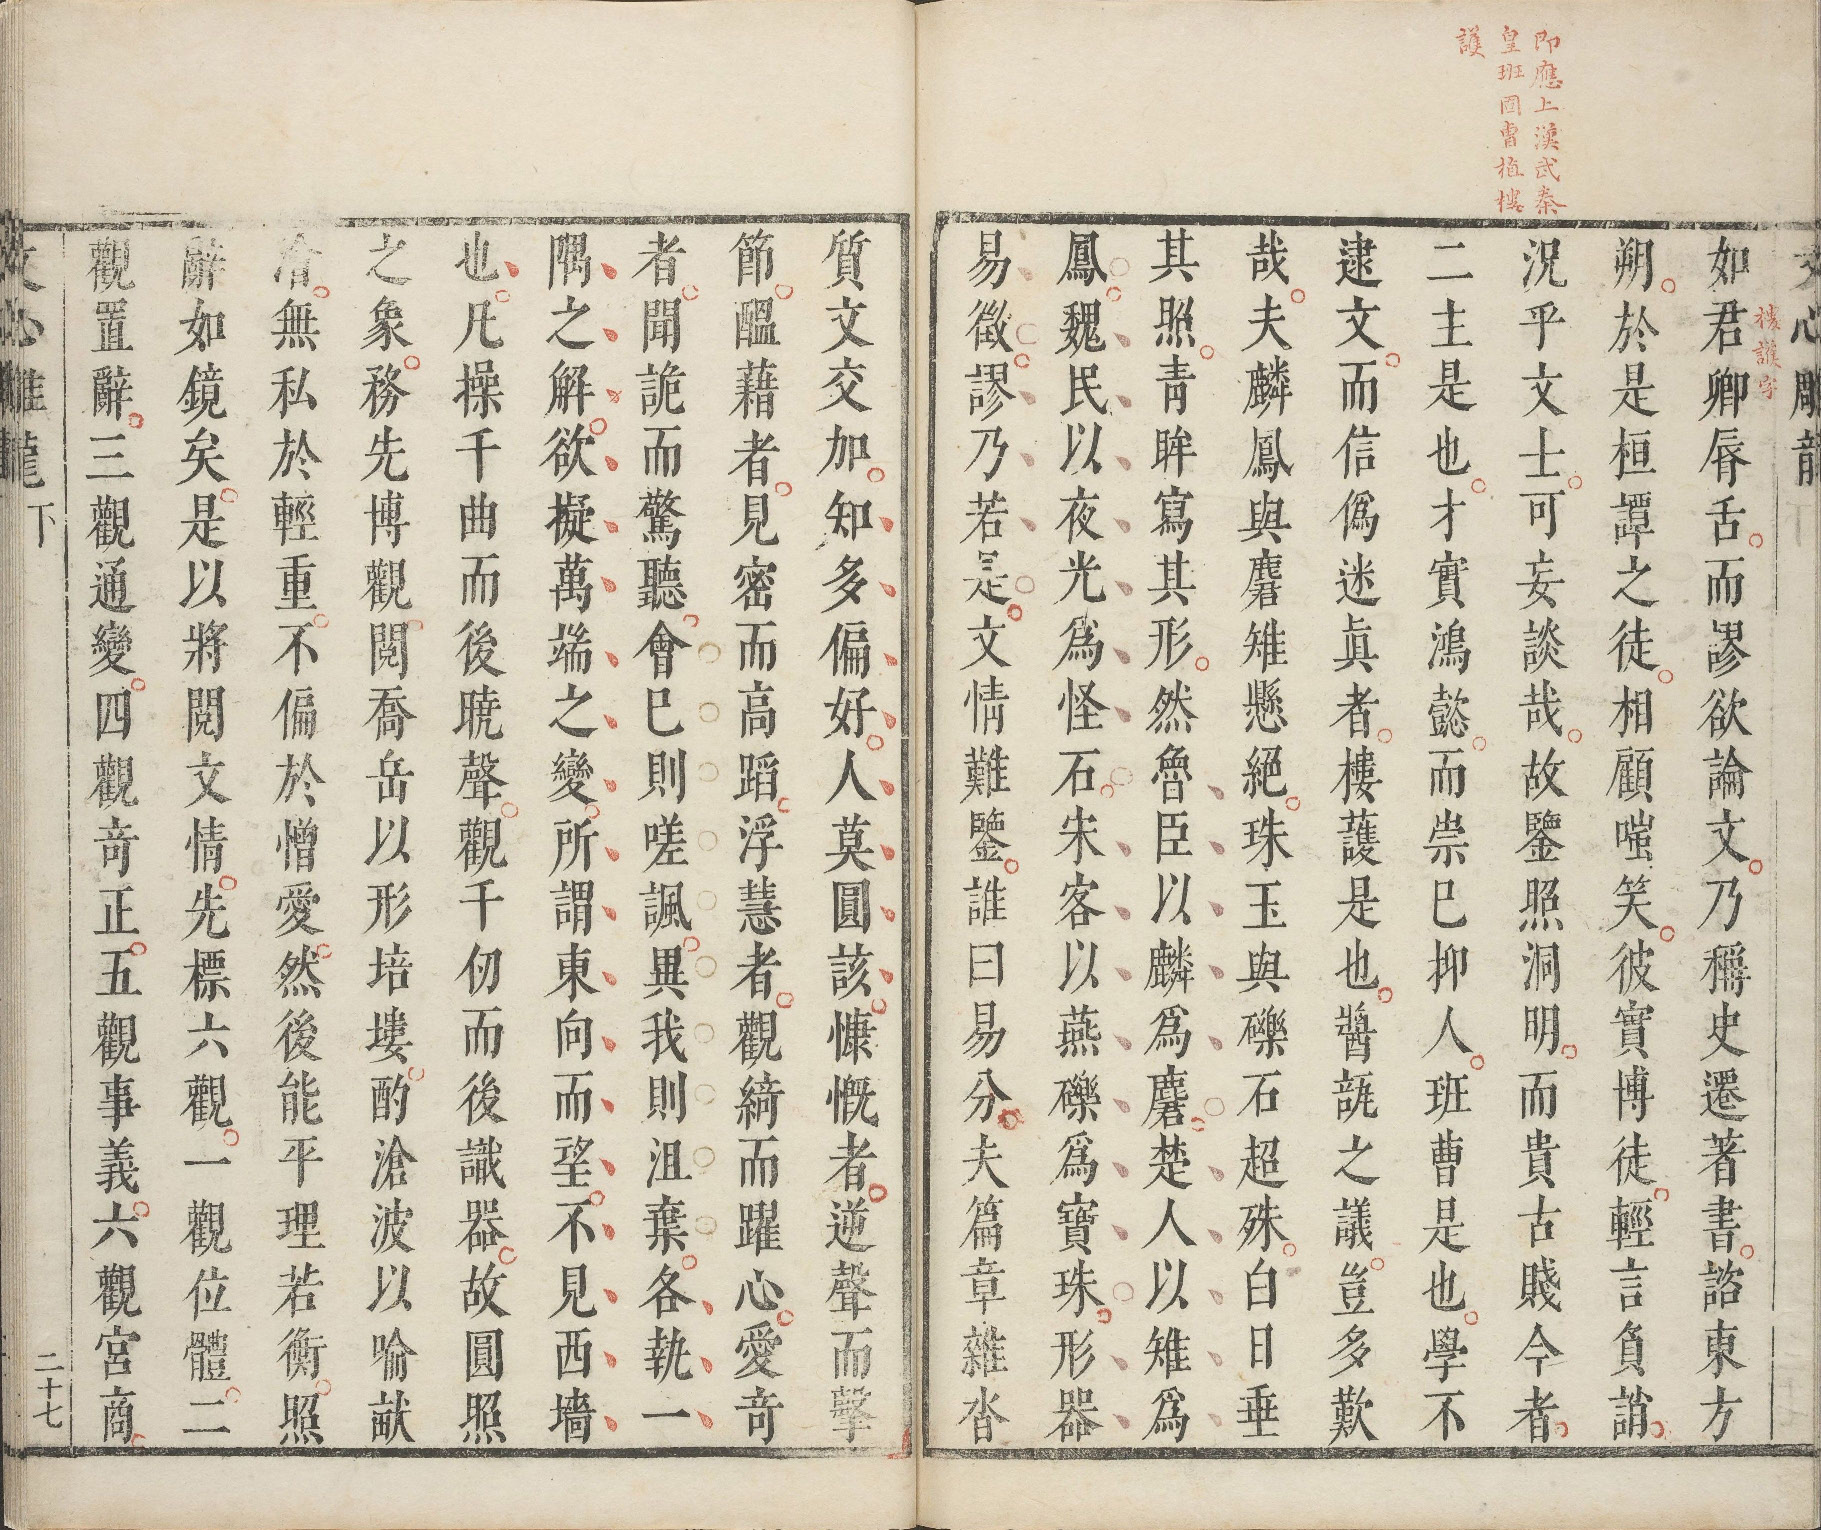 即應上漢武秦
皇班固曹植樓
護
文心雕龍
樓護字
如君卿辱舌而謬欲論文乃稱史遷著書諮東方
朔於是桓譚之徒相顧嗤笑彼實博徒輕言負誚
況乎文士可妄談哉故鑒照洞明而貴古賤今者
二主是也才實鴻懿而崇已抑人班曹是也學不
逮文而信僞迷眞者樓護是也醬瓿之議豈多歎
哉夫麟鳳與麏雉懸絕珠玉與礫石超殊白日垂
其照青眸寫其形然魯臣以麟爲麏楚人以雉爲
鳳魏民以夜光爲怪石宋客以燕礫爲寶珠形器
易徵謬乃若是文情難鑒誰曰易分夫篇章雜沓
質文交加知多偏好人莫圓該慷慨者逆聲而擊
節醞藉者見密而高蹈浮慧者觀綺而躍心愛奇
者聞詭而驚聽會巳則嗟諷異我則沮棄各執一
隅之解欲擬萬端之變所謂東向而望不見西墻
也凡操千曲而後曉聲觀千仞而後識器故圓照
之象務先博觀閱喬岳以形培塿酌滄波以喻畎
澮無私於輕重不偏於憎愛然後能平理若衡照
辭如鏡矣是以將閱文情先標六觀一觀位體二
觀置辭三觀通變四觀奇正五觀事義六觀宮商
文心雕龍
下
二十七